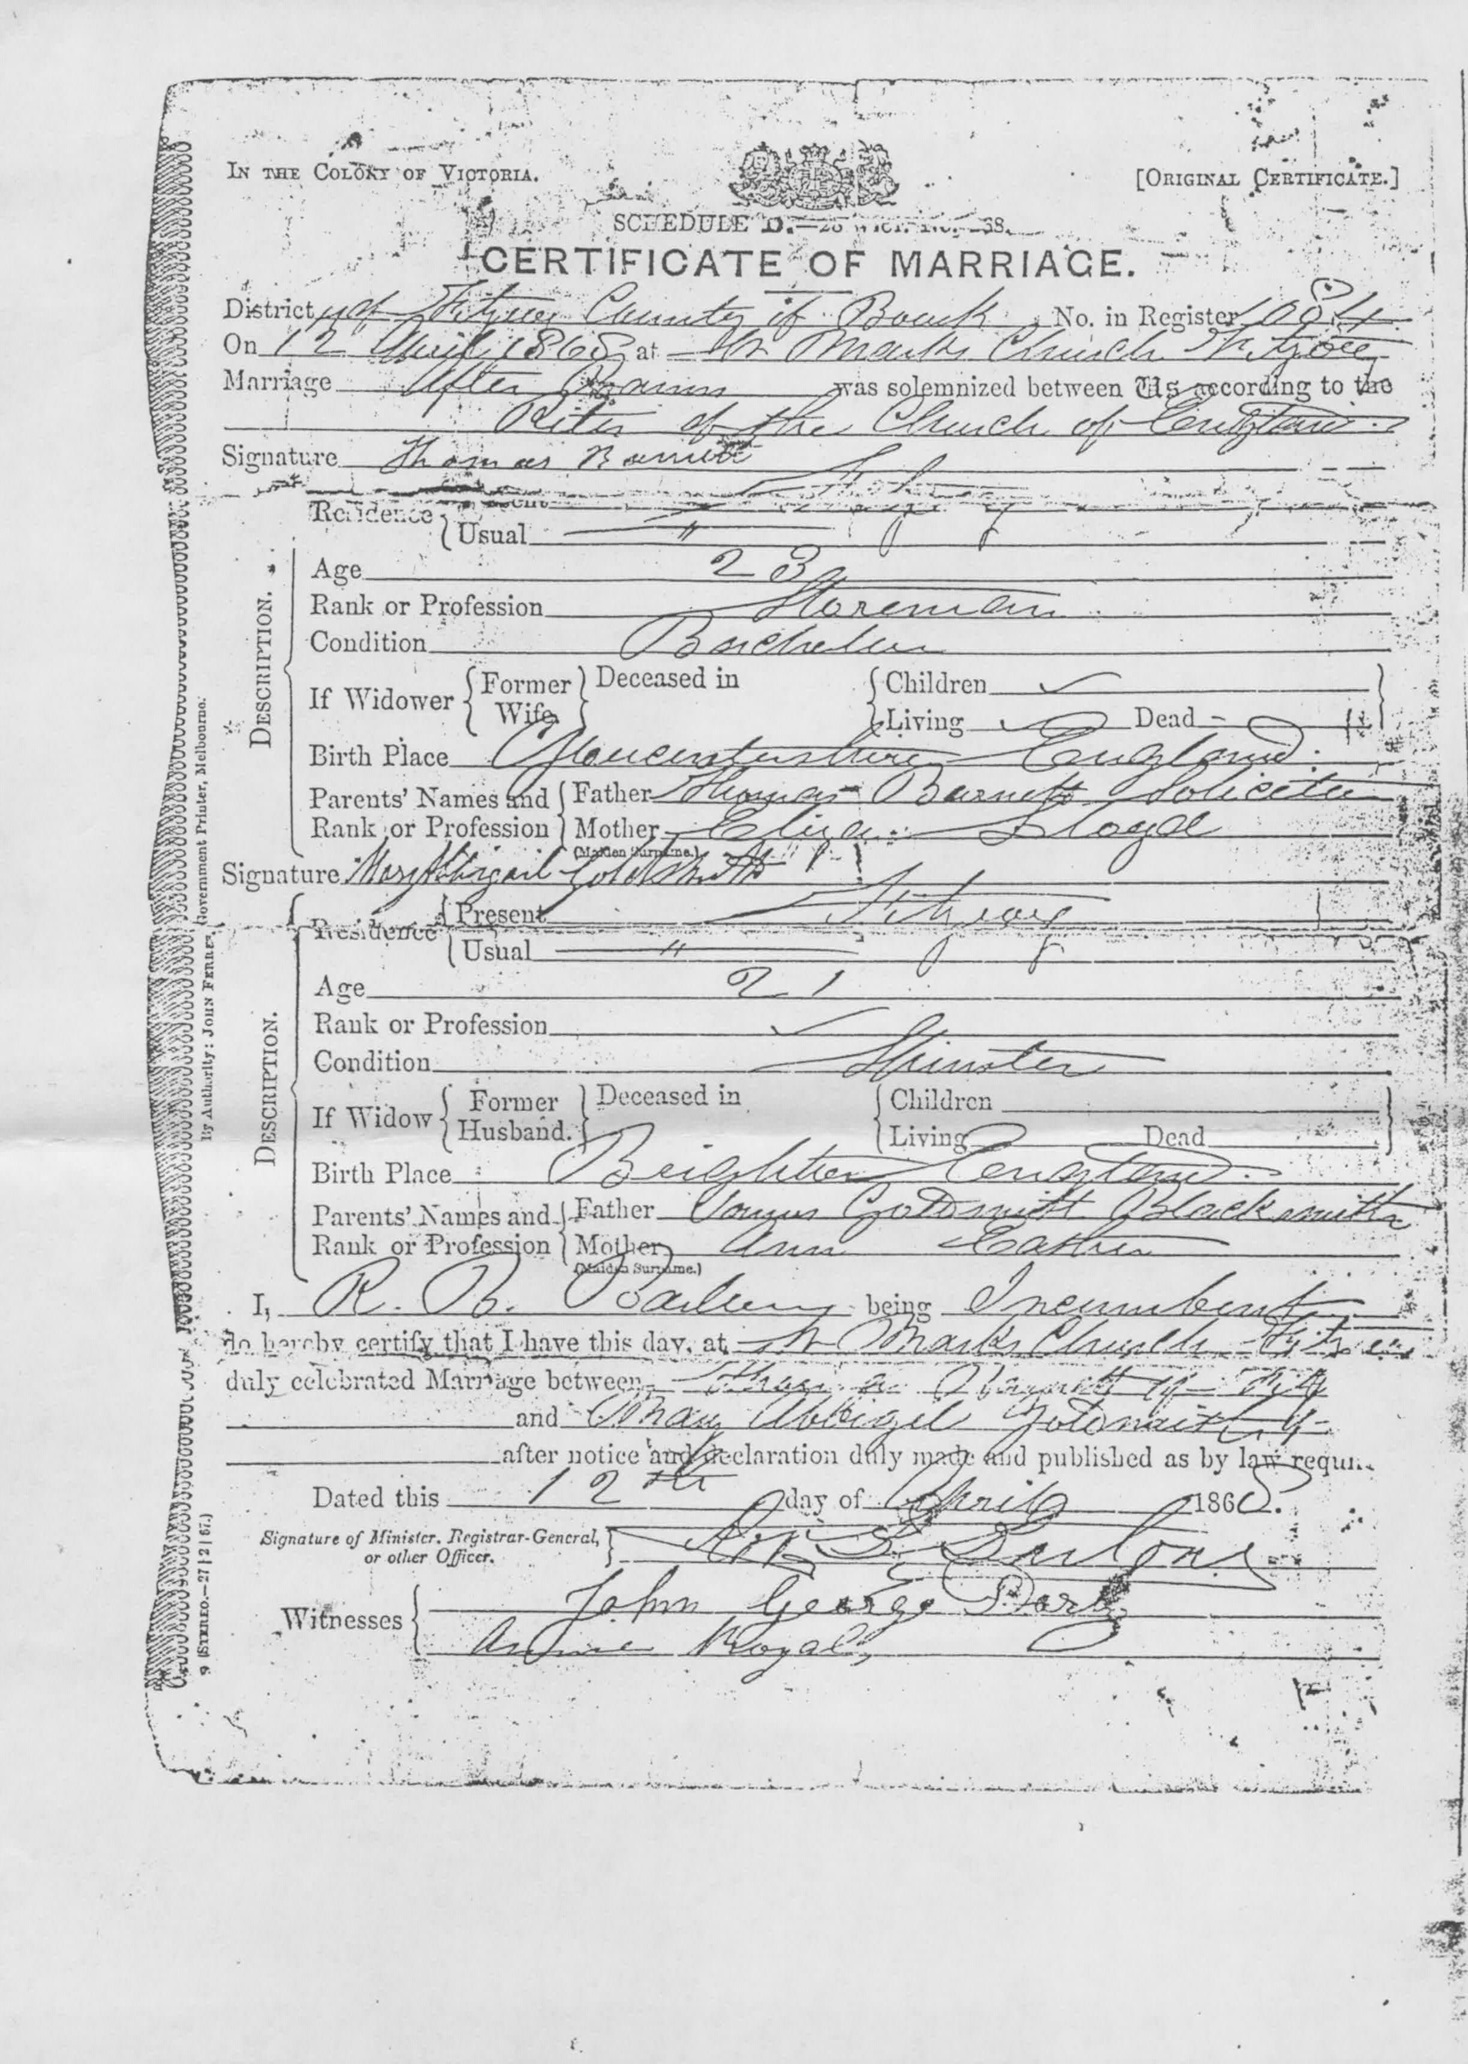 IN THE COLONY OF VICTORIA.
[ORIGINAL CERTIFICATE.]
SCHEDULE D.
CERTIFICATE OF MARRIAGE.
District of Fitzroy County of Bourk No. in Register 1084
On 12 April 1868 at St Marks Church Fitzroy
Marriage After Banns was solemnized between Us according to the
Rites of the Church of England
Signature Thomas Barnett
Residence Present Fitzroy
Usual "
DESCRIPTION.
Age 23
Rank or Profession Storeman
Condition Bachelor
If Widower Former Wife Deceased in Children
Living Dead
Birth Place Gloucestershire England
Parents' Names and Rank or Profession Father Thomas Barnett Solicitor
Mother Eliza Lloyd
(Maiden Surname.)
Signature Mary Abigail Goldsmith
Residence Present Fitzroy
Usual "
DESCRIPTION.
Age 21
Rank or Profession
Condition Spinster
If Widow Former Husband. Deceased in Children
Living Dead
Birth Place Brighton England
Parents' Names and Rank or Profession Father James Goldsmith Blacksmith
Mother Ann
(Maiden Surname.)
I, R. B. being Incumbent
do hereby certify that I have this day, at St Marks Church
duly celebrated Marriage between Thomas Barnett of
and Mary Abbigel
after notice and declaration duly made and published as by law
Dated this 12th day of April 1868.
Signature of Minister, Registrar-General, or other Officer.
Witnesses John George
Annie Royal
By Authority: JOHN FERRES, Government Printer, Melbourne.
9 (STEREO—27|2|67.)